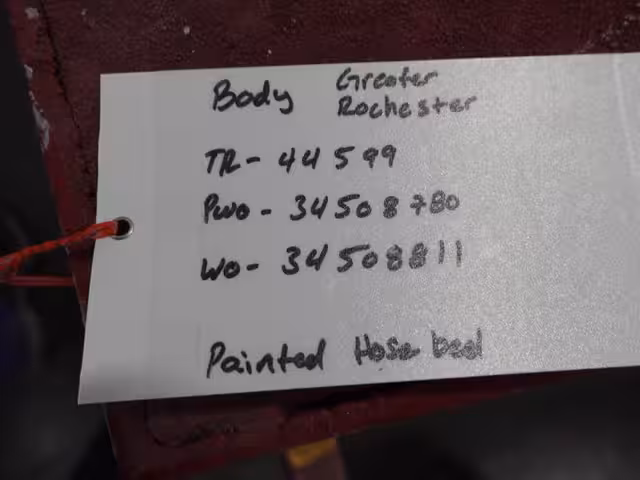 Body Greater
Rochester
TR- 44599
Pwo- 34508780
WO- 34508811
Painted Hose bed